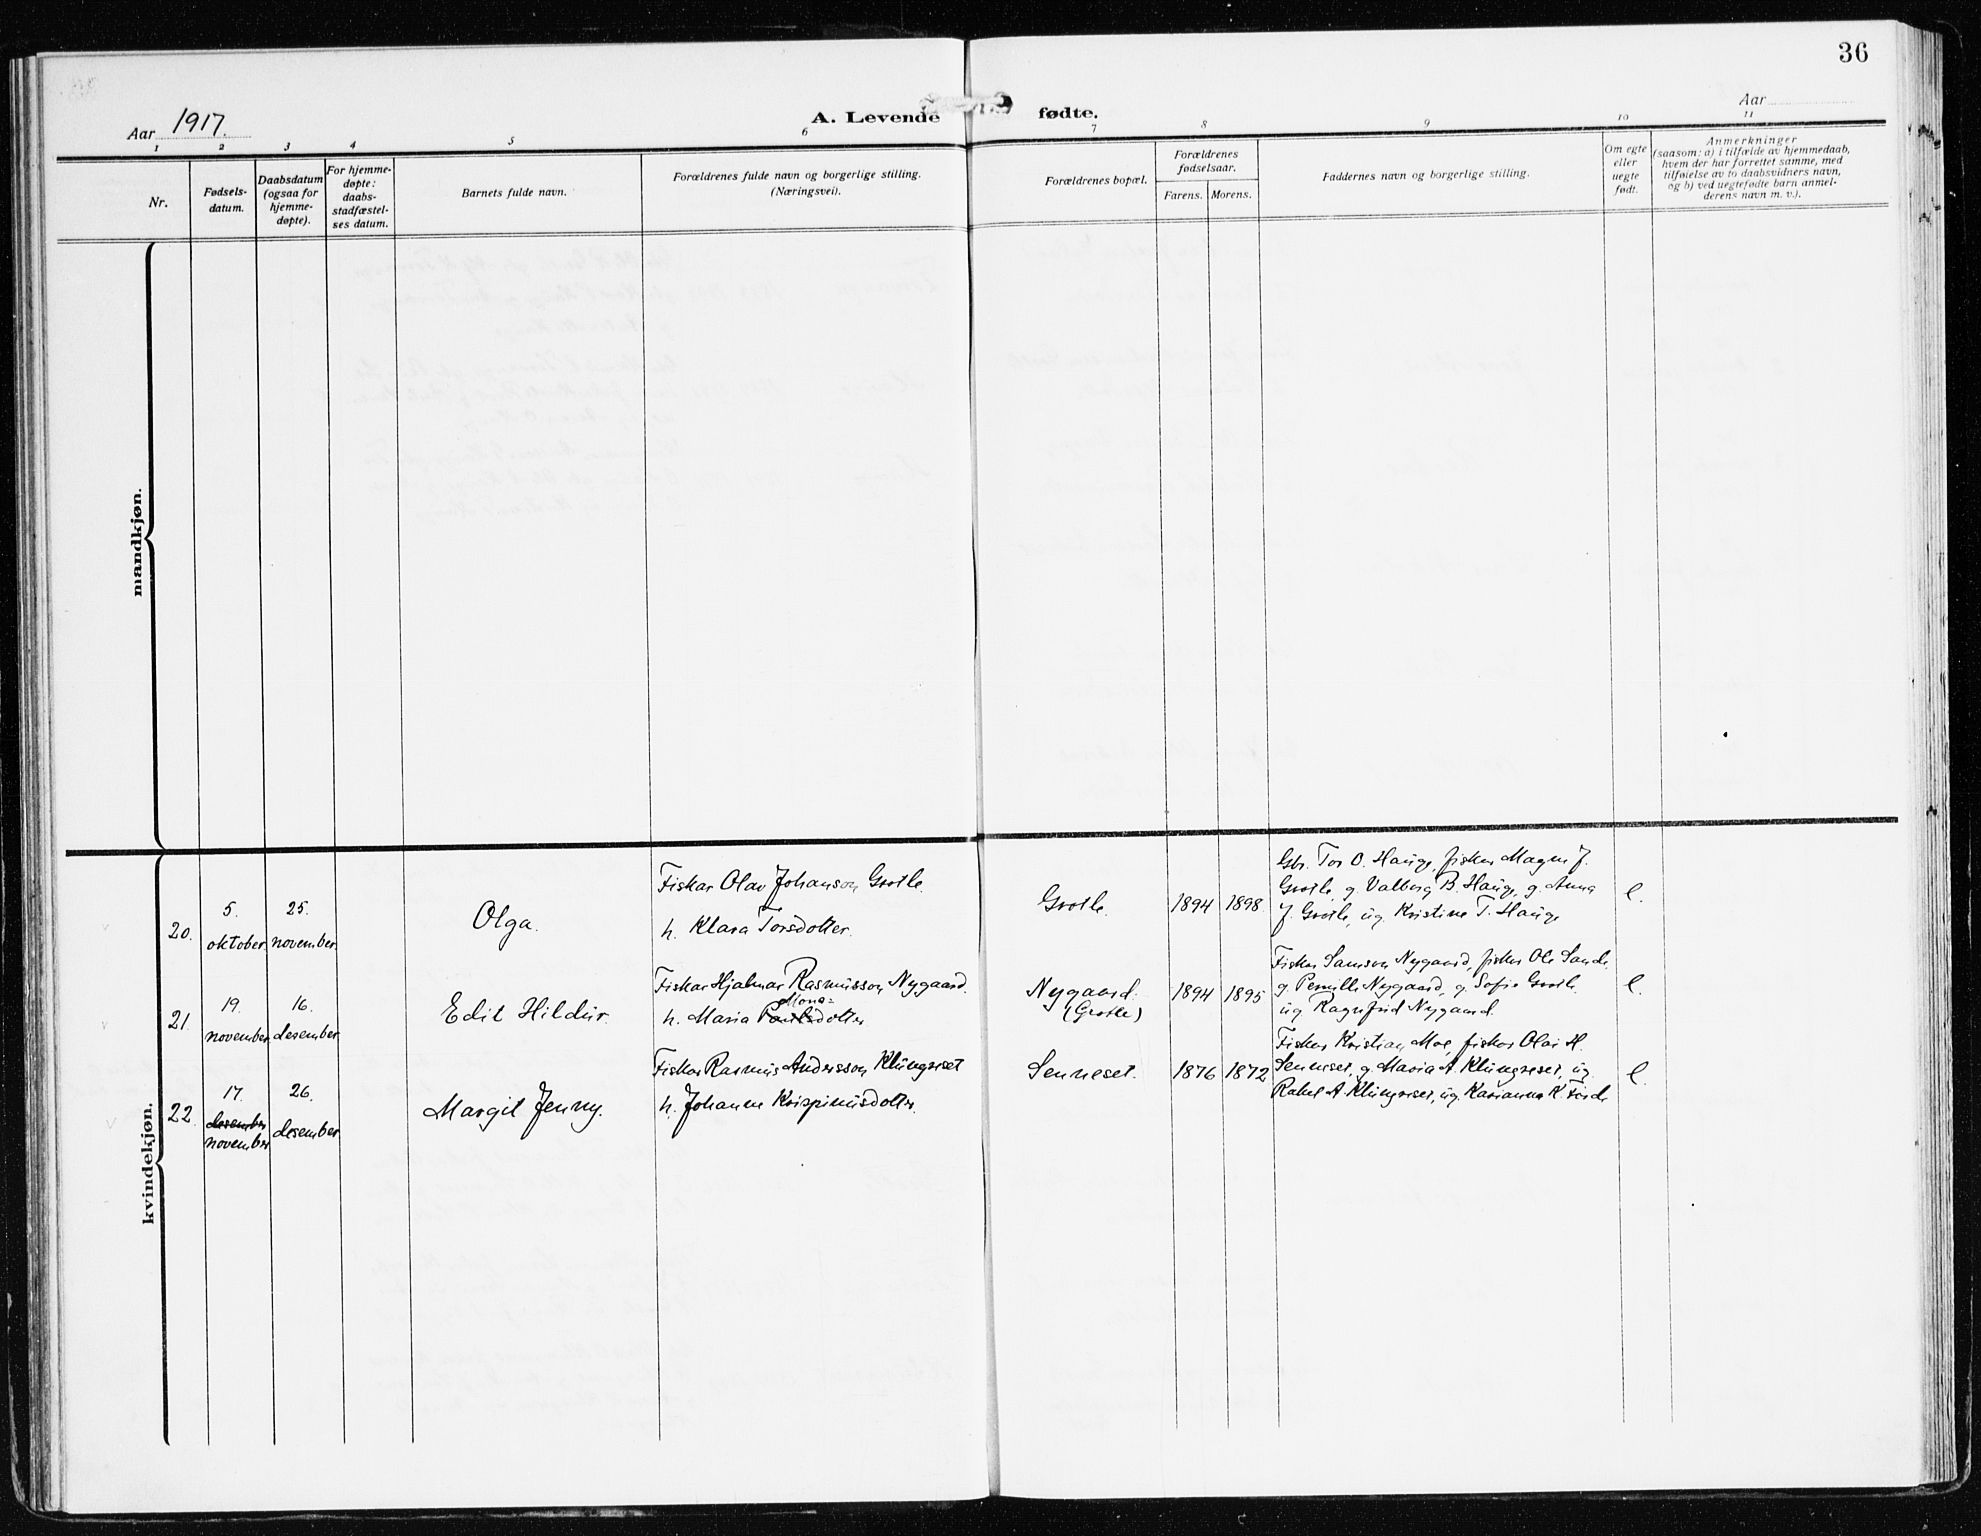 36
Aar 1917.
A. Levende fødte.
Aar
1 2 3 4 5 6 7 8 9 10 11
Nr.
Fødsels-
datum.
Daabsdatum
(ogsaa for
hjemme-
døpte).
For hjemme-
døpte:
daabs-
stadfæstel-
ses datum.
Barnets fulde navn.
Forældrenes fulde navn og borgerlige stilling.
(Næringsvei).
Forældrenes bopæl.
Forældrenes
fødselsaar.
Farens. Morens.
Faddernes navn og borgerlige stilling.
Om egte
eller
uegte
født.
Anmerkninger
(saasom: a) i tilfælde av hjemmedaab,
hvem der har forrettet samme, med
tilføielse av to daabsvidners navn,
og b) ved uegtefødte barn anmel-
derens navn m. v.).
mandkjøn.
kvindekjøn.
20.
5.
oktober.
25.
november.
Olga.
Fiskar Olav Johanson Grotle.
h. Klara Torsdotter.
Grotle.
1894 1898.
Gbr. Tor O. Hauge, fiskar Magn J.
Grotle, g. Valborg B. Hauge, g. Anna
J. Grotle, ug. Kristine T. Hauge
e.
21.
19.
november.
16.
desember.
Edit Hildur.
Fiskar Hjalmar Rasmusson Nygaard.
Mons=
h. Maria Paulsdotter
Nygaard.
(Grotle)
1894 1895
Fiskar Samson Nygaard, fiskar Ole Sande.
g. Pernille Nygaard, g. Sofie Grotle.
ug Ragnfrid Nygaard.
e.
22.
17.
desember
november
26.
desember.
Margit Jenny.
Fiskar Rasmus Andersson Klungreset
h. Johanne Krispinusdotter.
Senneset.
1876 1872
Fiskar Kristian Moe, fiskar Olai H.
Senneset, g. Maria A Klungreset, ug.
Rakel A. Klungreset, ug. Karianna K Førde
e.